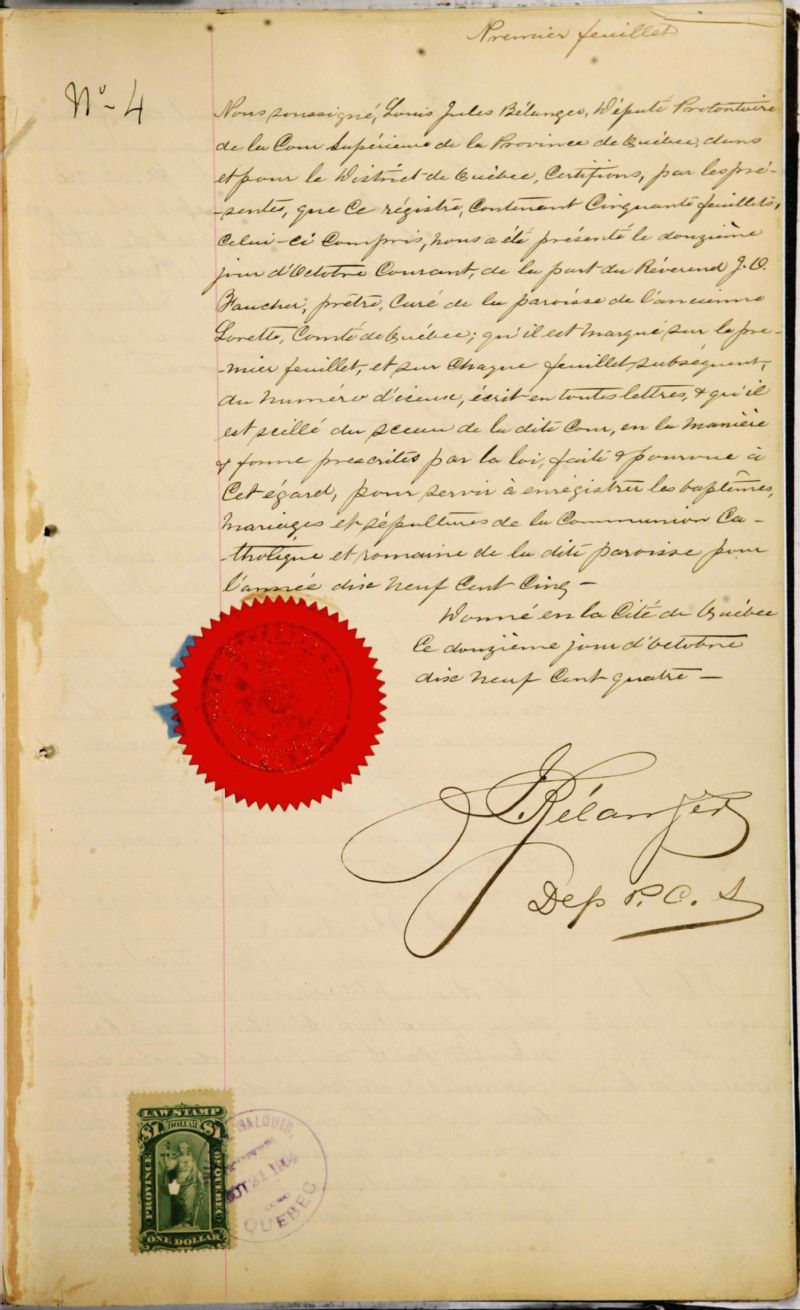 Premier feuillet
No 4
Nous soussigné, Louis Jules Bélanger, Député Protonotaire
de la Cour Supérieure de la Province de Québec, dans
et pour le District de Québec, Certifions, par les pré-
-sentes, que ce régistre, Contenant Cinquante feuillets,
Celui-ci Compris, nous a été présenté le douzième
jour d'Octobre Courant, de la part du Réverend J. O.
Faucher, prêtre, Curé de la paroisse de l'ancienne
Lorette, Comté de Québec; qu'il est marqué sur le pre-
-mier feuillet, et sur Chaque feuillet subséquent,
du numéro d'iceux, écrit en toutes lettres, & qu'il
est scellé du sceau de la dite Cour, en la manière
& forme prescrites par la loi, faite & pourvue à
Cet égard, pour servir à enregistrer les baptêmes,
Mariages et sépultures de la Communion Ca-
-tholique et romaine de la dite paroisse pour
l'année dix neuf Cent Cinq —
Donné en la Cité de Québec
Ce douzième jour d'octobre
dix neuf Cent quatre —
J. Bélanger
Dep P. C. S
LAW STAMP
$1 DOLLAR $1
PROVINCE OF QUEBEC
ONE DOLLAR
MALOUIN,
1904
QUEBEC